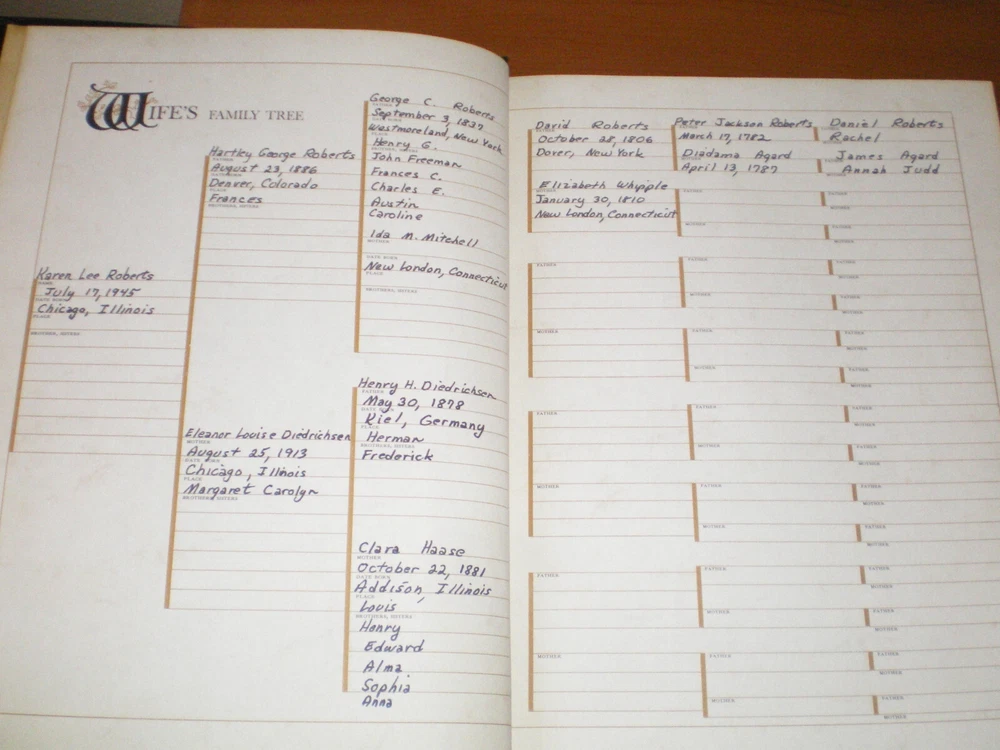 WIFE'S FAMILY TREE
Karen Lee Roberts
NAME
July 17, 1945
DATE BORN
Chicago, Illinois
PLACE
BROTHERS, SISTERS
Hartley George Roberts
FATHER
August 23, 1886
DATE BORN
Denver, Colorado
PLACE
Frances
BROTHERS, SISTERS
Eleanor Louise Diedrichsen
MOTHER
August 25, 1913
DATE BORN
Chicago, Illinois
PLACE
Margaret Carolyn
BROTHERS, SISTERS
George C. Roberts
FATHER
September 3, 1837
DATE BORN
Westmoreland, New York
PLACE
Henry G.
BROTHERS, SISTERS
John Freeman
Frances C.
Charles E.
Austin
Caroline
Ida M. Mitchell
MOTHER
DATE BORN
New London, Connecticut
PLACE
BROTHERS, SISTERS
Henry H. Diedrichsen
FATHER
May 30, 1878
DATE BORN
Kiel, Germany
PLACE
Herman
BROTHERS, SISTERS
Frederick
Clara Haase
MOTHER
October 22, 1881
DATE BORN
Addison, Illinois
PLACE
Louis
BROTHERS, SISTERS
Henry
Edward
Alma
Sophia
Anna
David Roberts
FATHER
October 28, 1806
Dover, New York
Elizabeth Whipple
MOTHER
January 30, 1810
New London, Connecticut
FATHER
MOTHER
FATHER
MOTHER
FATHER
MOTHER
Peter Jackson Roberts
FATHER
March 17, 1782
Diadama Agard
MOTHER
April 13, 1787
FATHER
MOTHER
FATHER
MOTHER
FATHER
MOTHER
FATHER
MOTHER
FATHER
MOTHER
FATHER
MOTHER
FATHER
MOTHER
Daniel Roberts
FATHER
Rachel
MOTHER
James Agard
FATHER
Annah Judd
MOTHER
FATHER
MOTHER
FATHER
MOTHER
FATHER
MOTHER
FATHER
MOTHER
FATHER
MOTHER
FATHER
MOTHER
FATHER
MOTHER
FATHER
MOTHER
FATHER
MOTHER
FATHER
MOTHER
FATHER
MOTHER
FATHER
MOTHER
FATHER
MOTHER
FATHER
MOTHER